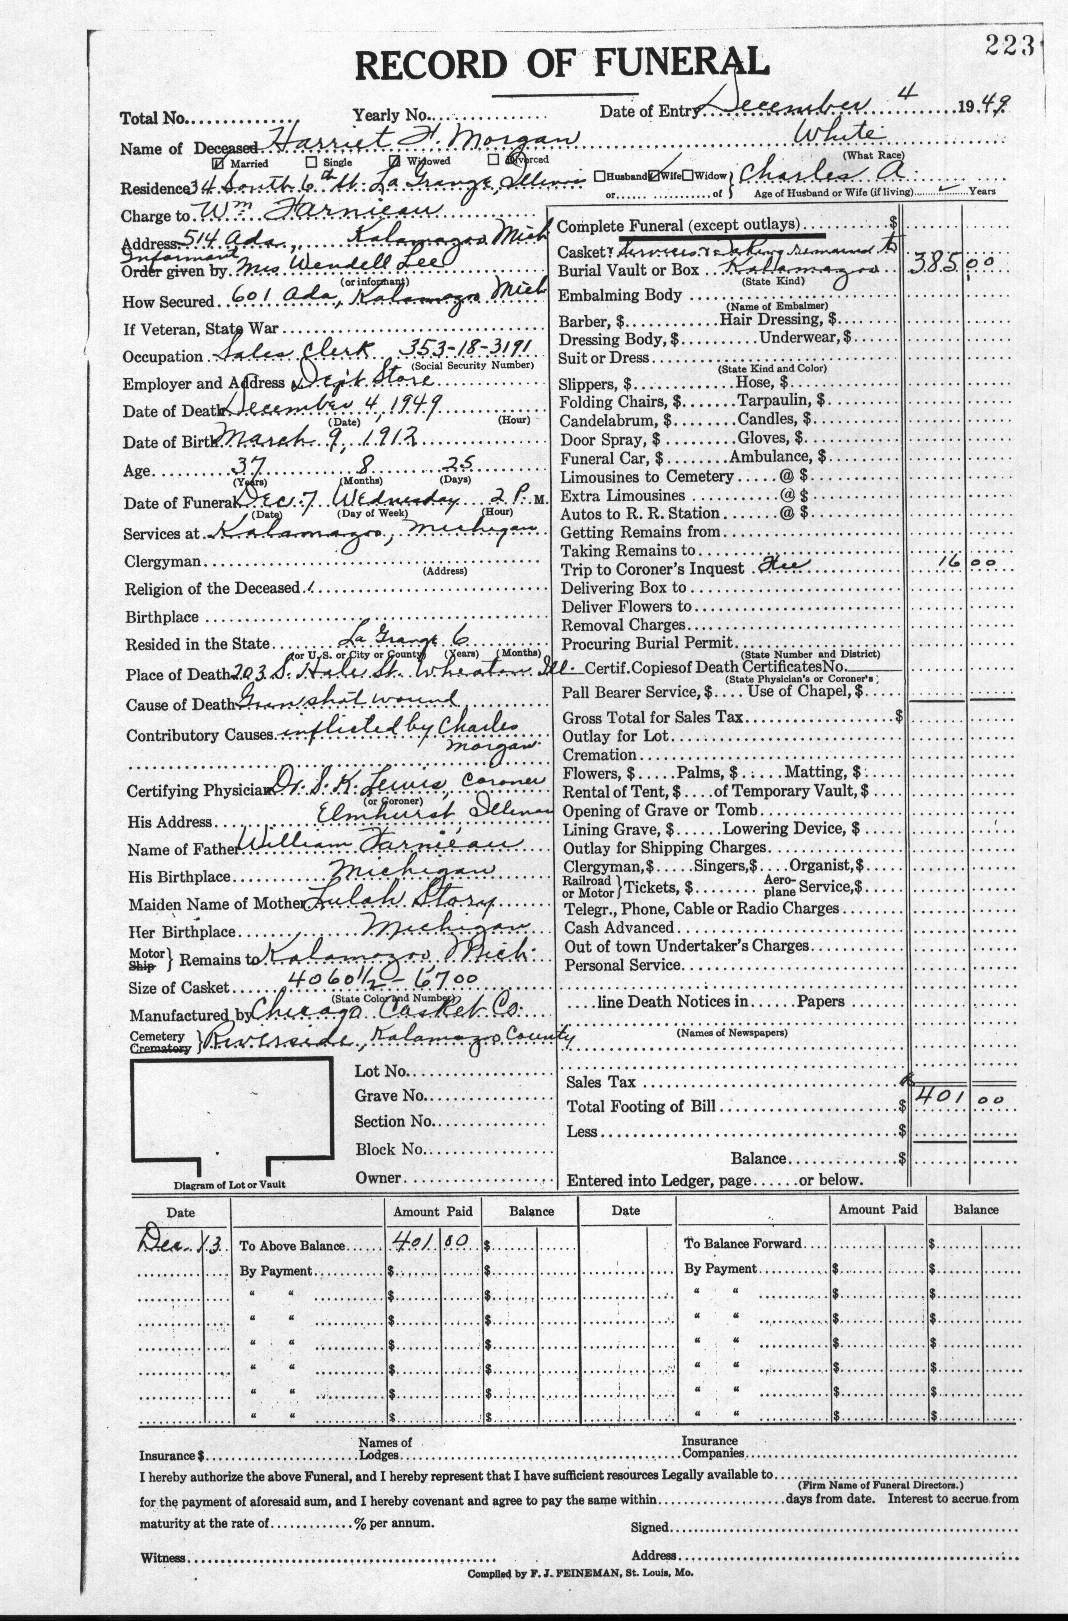 223
RECORD OF FUNERAL
Total No. Yearly No. Date of Entry December 4 1949
Name of Deceased Harriet F. Morgan White
Married Single Widowed Divorced (What Race)
Residence 34 South 6th St. La Grange, Illinois Husband Wife Widow } Charles A.
or of } Age of Husband or Wife (if living) Years
Charge to Wm Farnieau
Address 514 Ada., Kalamazoo Mich
Informant
Order given by Mrs Wendell Lee
(or informant)
How Secured 601 Ada, Kalamazoo Mich
If Veteran, State War
Occupation Sales Clerk 353-18-3191
(Social Security Number)
Employer and Address Dept Store
Date of Death December 4, 1949
(Date) (Hour)
Date of Birth March 9, 1912
Age 37 8 25
(Years) (Months) (Days)
Date of Funeral Dec 7 Wednesday 2 P. M.
(Date) (Day of Week) (Hour)
Services at Kalamazoo, Michigan
Clergyman
(Address)
Religion of the Deceased
Birthplace
Resided in the State La Grange 6
(or U.S. or City or County) (Years) (Months)
Place of Death 203 S. Hale St. Wheaton Ill.
Cause of Death Gun shot wound
Contributory Causes inflicted by Charles
Morgan
Certifying Physician Dr. S. K. Lewis, Coroner
(or Coroner)
His Address Elmhurst, Illinois
Name of Father William Farnieau
His Birthplace Michigan
Maiden Name of Mother Lulah Story
Her Birthplace Michigan
Motor
Ship } Remains to Kalamazoo, Mich.
Size of Casket 4060 1/2 - 6700
(State Color and Number)
Manufactured by Chicago Casket Co.
Cemetery
Crematory } Riverside, Kalamazoo County
Lot No.
Grave No.
Section No.
Block No.
Owner
Diagram of Lot or Vault
Complete Funeral (except outlays) $
Casket & Services & Taking remains to
Burial Vault or Box Kalamazoo 385 00
(State Kind)
Embalming Body
(Name of Embalmer)
Barber, $ Hair Dressing, $
Dressing Body, $ Underwear, $
Suit or Dress
(State Kind and Color)
Slippers, $ Hose, $
Folding Chairs, $ Tarpaulin, $
Candelabrum, $ Candles, $
Door Spray, $ Gloves, $
Funeral Car, $ Ambulance, $
Limousines to Cemetery @ $
Extra Limousines @ $
Autos to R. R. Station @ $
Getting Remains from
Taking Remains to
Trip to Coroner's Inquest Fee 16 00
Delivering Box to
Deliver Flowers to
Removal Charges
Procuring Burial Permit
(State Number and District)
Certif. Copies of Death Certificates No.
(State Physician's or Coroner's)
Pall Bearer Service, $ Use of Chapel, $
Gross Total for Sales Tax $
Outlay for Lot
Cremation
Flowers, $ Palms, $ Matting, $
Rental of Tent, $ of Temporary Vault, $
Opening of Grave or Tomb
Lining Grave, $ Lowering Device, $
Outlay for Shipping Charges
Clergyman, $ Singers, $ Organist, $
Railroad
or Motor } Tickets, $ Aero-
plane Service, $
Telegr., Phone, Cable or Radio Charges
Cash Advanced
Out of town Undertaker's Charges
Personal Service
line Death Notices in Papers
(Names of Newspapers)
Sales Tax
Total Footing of Bill $ 401 00
Less $
Balance $
Entered into Ledger, page or below.
Date Amount Paid Balance Date Amount Paid Balance
Dec. 13 To Above Balance 401 00 $ To Balance Forward $
By Payment $ $ By Payment $ $
“ “ $ $ “ “ $ $
“ “ $ $ “ “ $ $
“ “ $ $ “ “ $ $
“ “ $ $ “ “ $ $
“ “ $ $ “ “ $ $
“ “ $ $ “ “ $ $
Insurance $ Names of
Lodges Insurance
Companies
I hereby authorize the above Funeral, and I hereby represent that I have sufficient resources Legally available to
(Firm Name of Funeral Directors.)
for the payment of aforesaid sum, and I hereby covenant and agree to pay the same within days from date. Interest to accrue from
maturity at the rate of % per annum. Signed
Witness Address
Compiled by F. J. FEINEMAN, St. Louis, Mo.